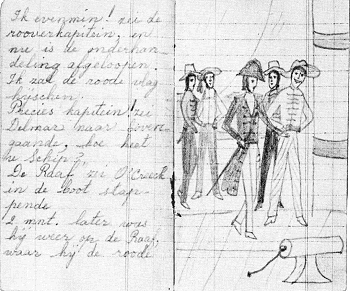 Ik evenmin! zei de
rooverkapitein, en
nu is de onderhan
deling afgeloopen.
Ik zal de roode vlag
hijschen.
Precies kapitein! zei
Delmar naar boven
gaande, hoe heet
uw schip?,
De Raaf zei O'Creek
in de boot stap-
pende
2 mnt. later was
hij weer op de Raaf,
waar hij de roode